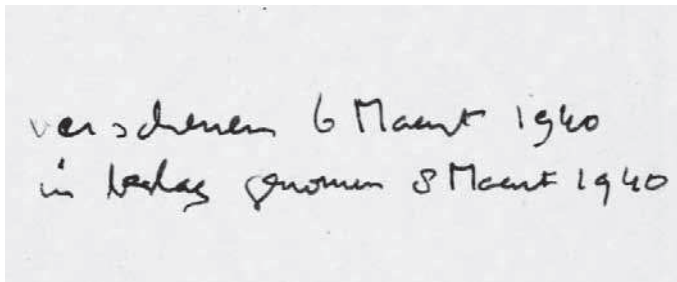 verschenen 6 Maart 1940
in beslag genomen 8 Maart 1940